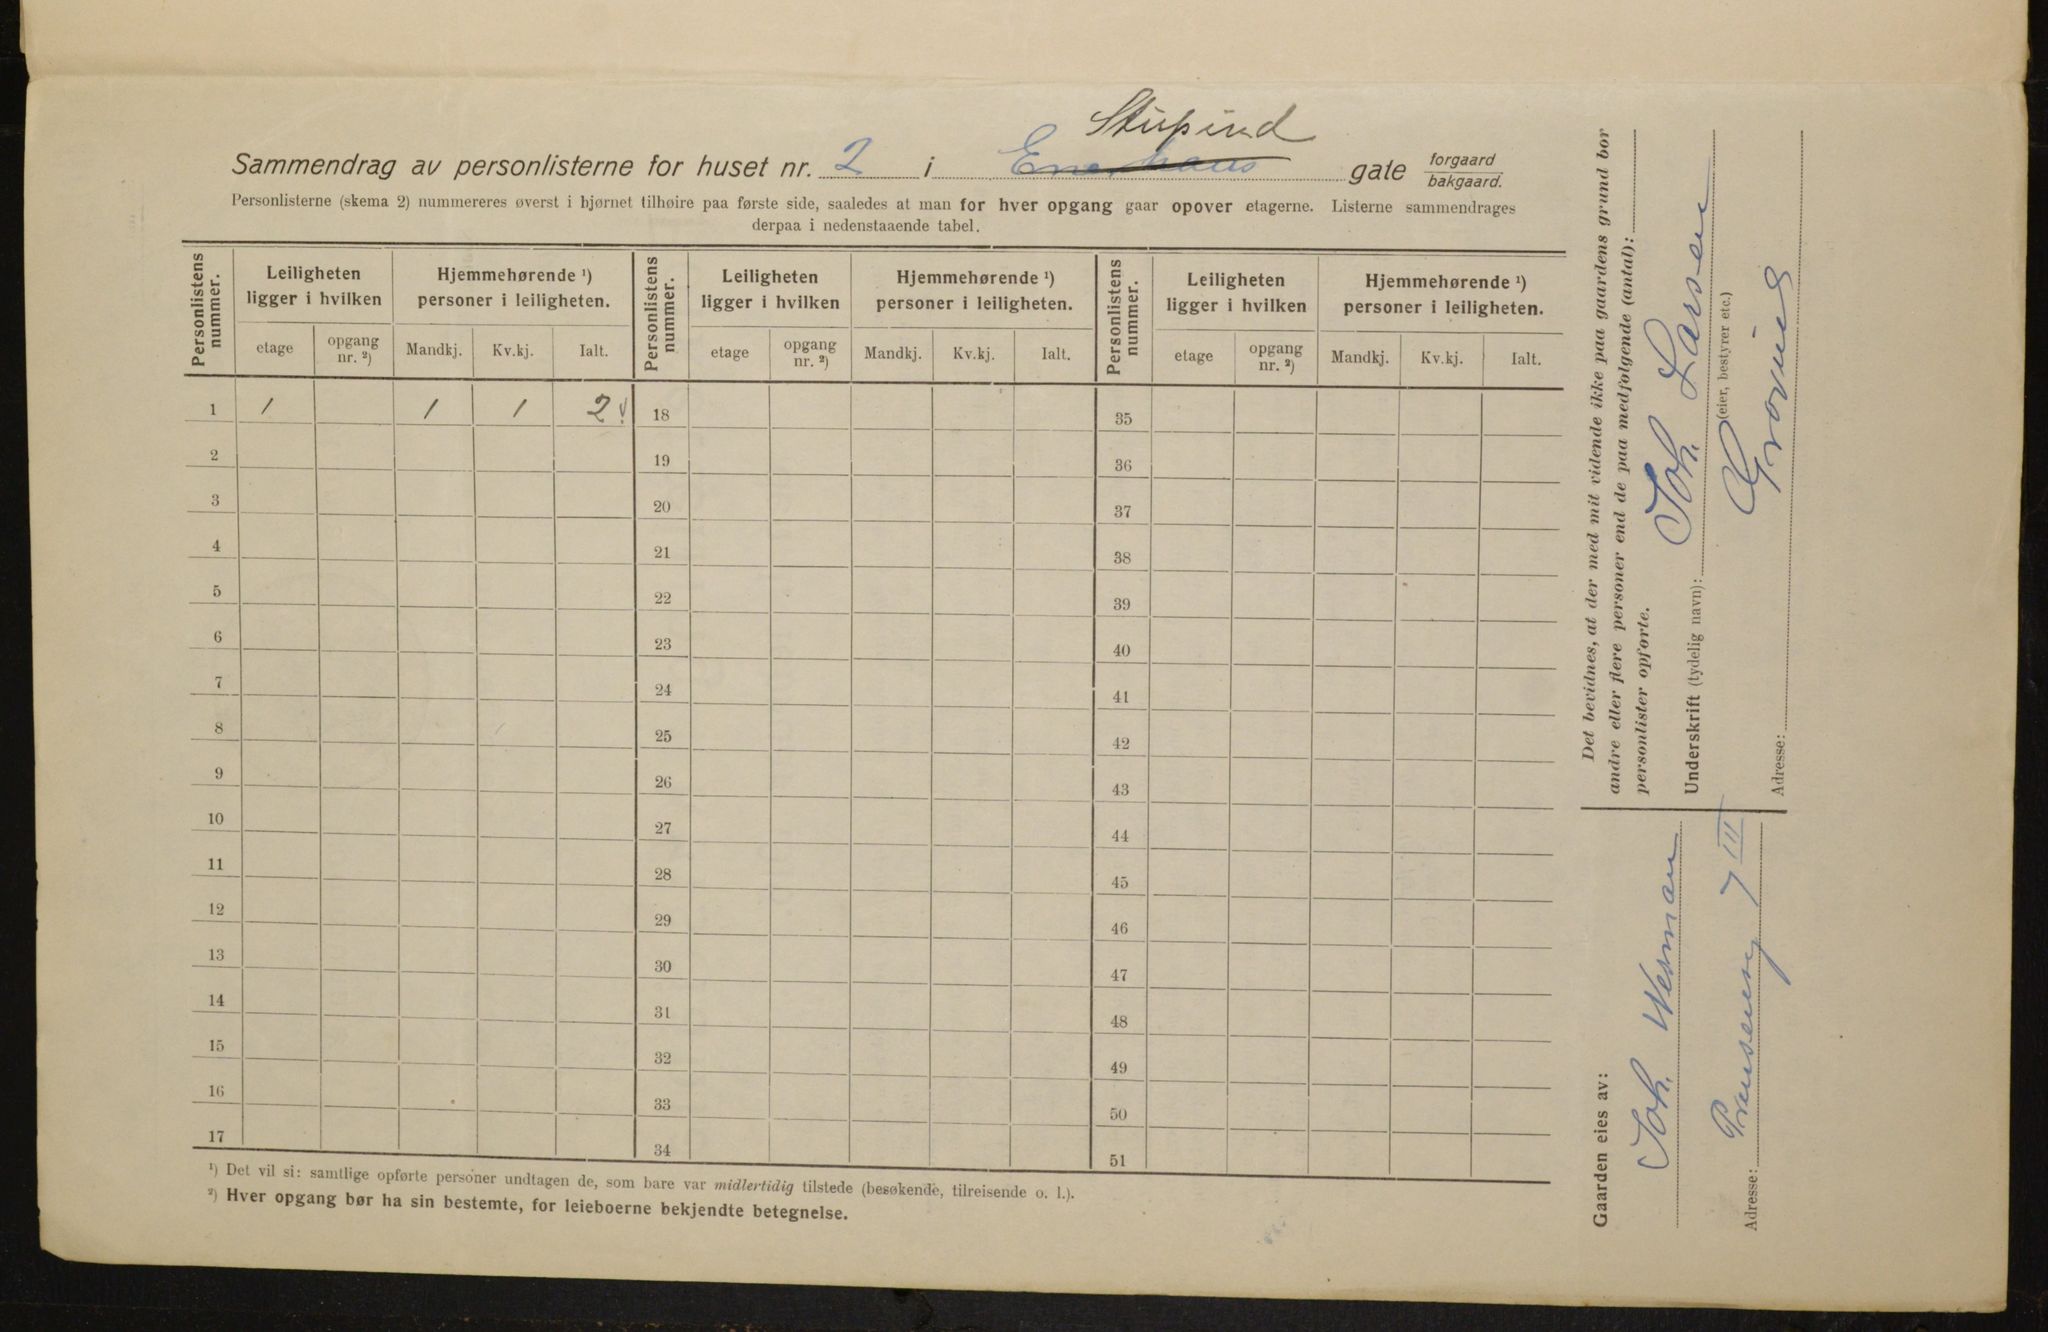 Stupind
Sammendrag av personlisterne for huset nr. 2 i gate forgaard
bakgaard.
Personlisterne (skema 2) nummereres øverst i hjørnet tilhøire paa første side, saaledes at man for hver opgang gaar opover etagerne. Listerne sammendrages
derpaa i nedenstaaende tabel.
Personlistens nummer. Leiligheten ligger i hvilken Hjemmehørende ¹) personer i leiligheten. Personlistens nummer. Leiligheten ligger i hvilken Hjemmehørende ¹) personer i leiligheten. Personlistens nummer. Leiligheten ligger i hvilken Hjemmehørende ¹) personer i leiligheten.
etage opgang nr. ²) Mandkj. Kv.kj. Ialt. etage opgang nr. ²) Mandkj. Kv.kj. Ialt. etage opgang nr. ²) Mandkj. Kv.kj. Ialt.
1 1 1 1 2 v 18 35
2 19 36
3 20 37
4 21 38
5 22 39
6 23 40
7 24 41
8 25 42
9 26 43
10 27 44
11 28 45
12 29 46
13 30 47
14 31 48
15 32 49
16 33 50
17 34 51
¹) Det vil si: samtlige opførte personer undtagen de, som bare var midlertidig tilstede (besøkende, tilreisende o. l.).
²) Hver opgang bør ha sin bestemte, for leieboerne bekjendte betegnelse.
Det bevidnes, at der med mit vidende ikke paa gaardens grund bor
andre eller flere personer end de paa medfølgende (antal):
personlister opførte.
Joh. Larsen
Underskrift (tydelig navn):
(eier, bestyrer etc.)
Adresse:
Gaarden eies av:
Joh. Werman
Adresse: 7 III